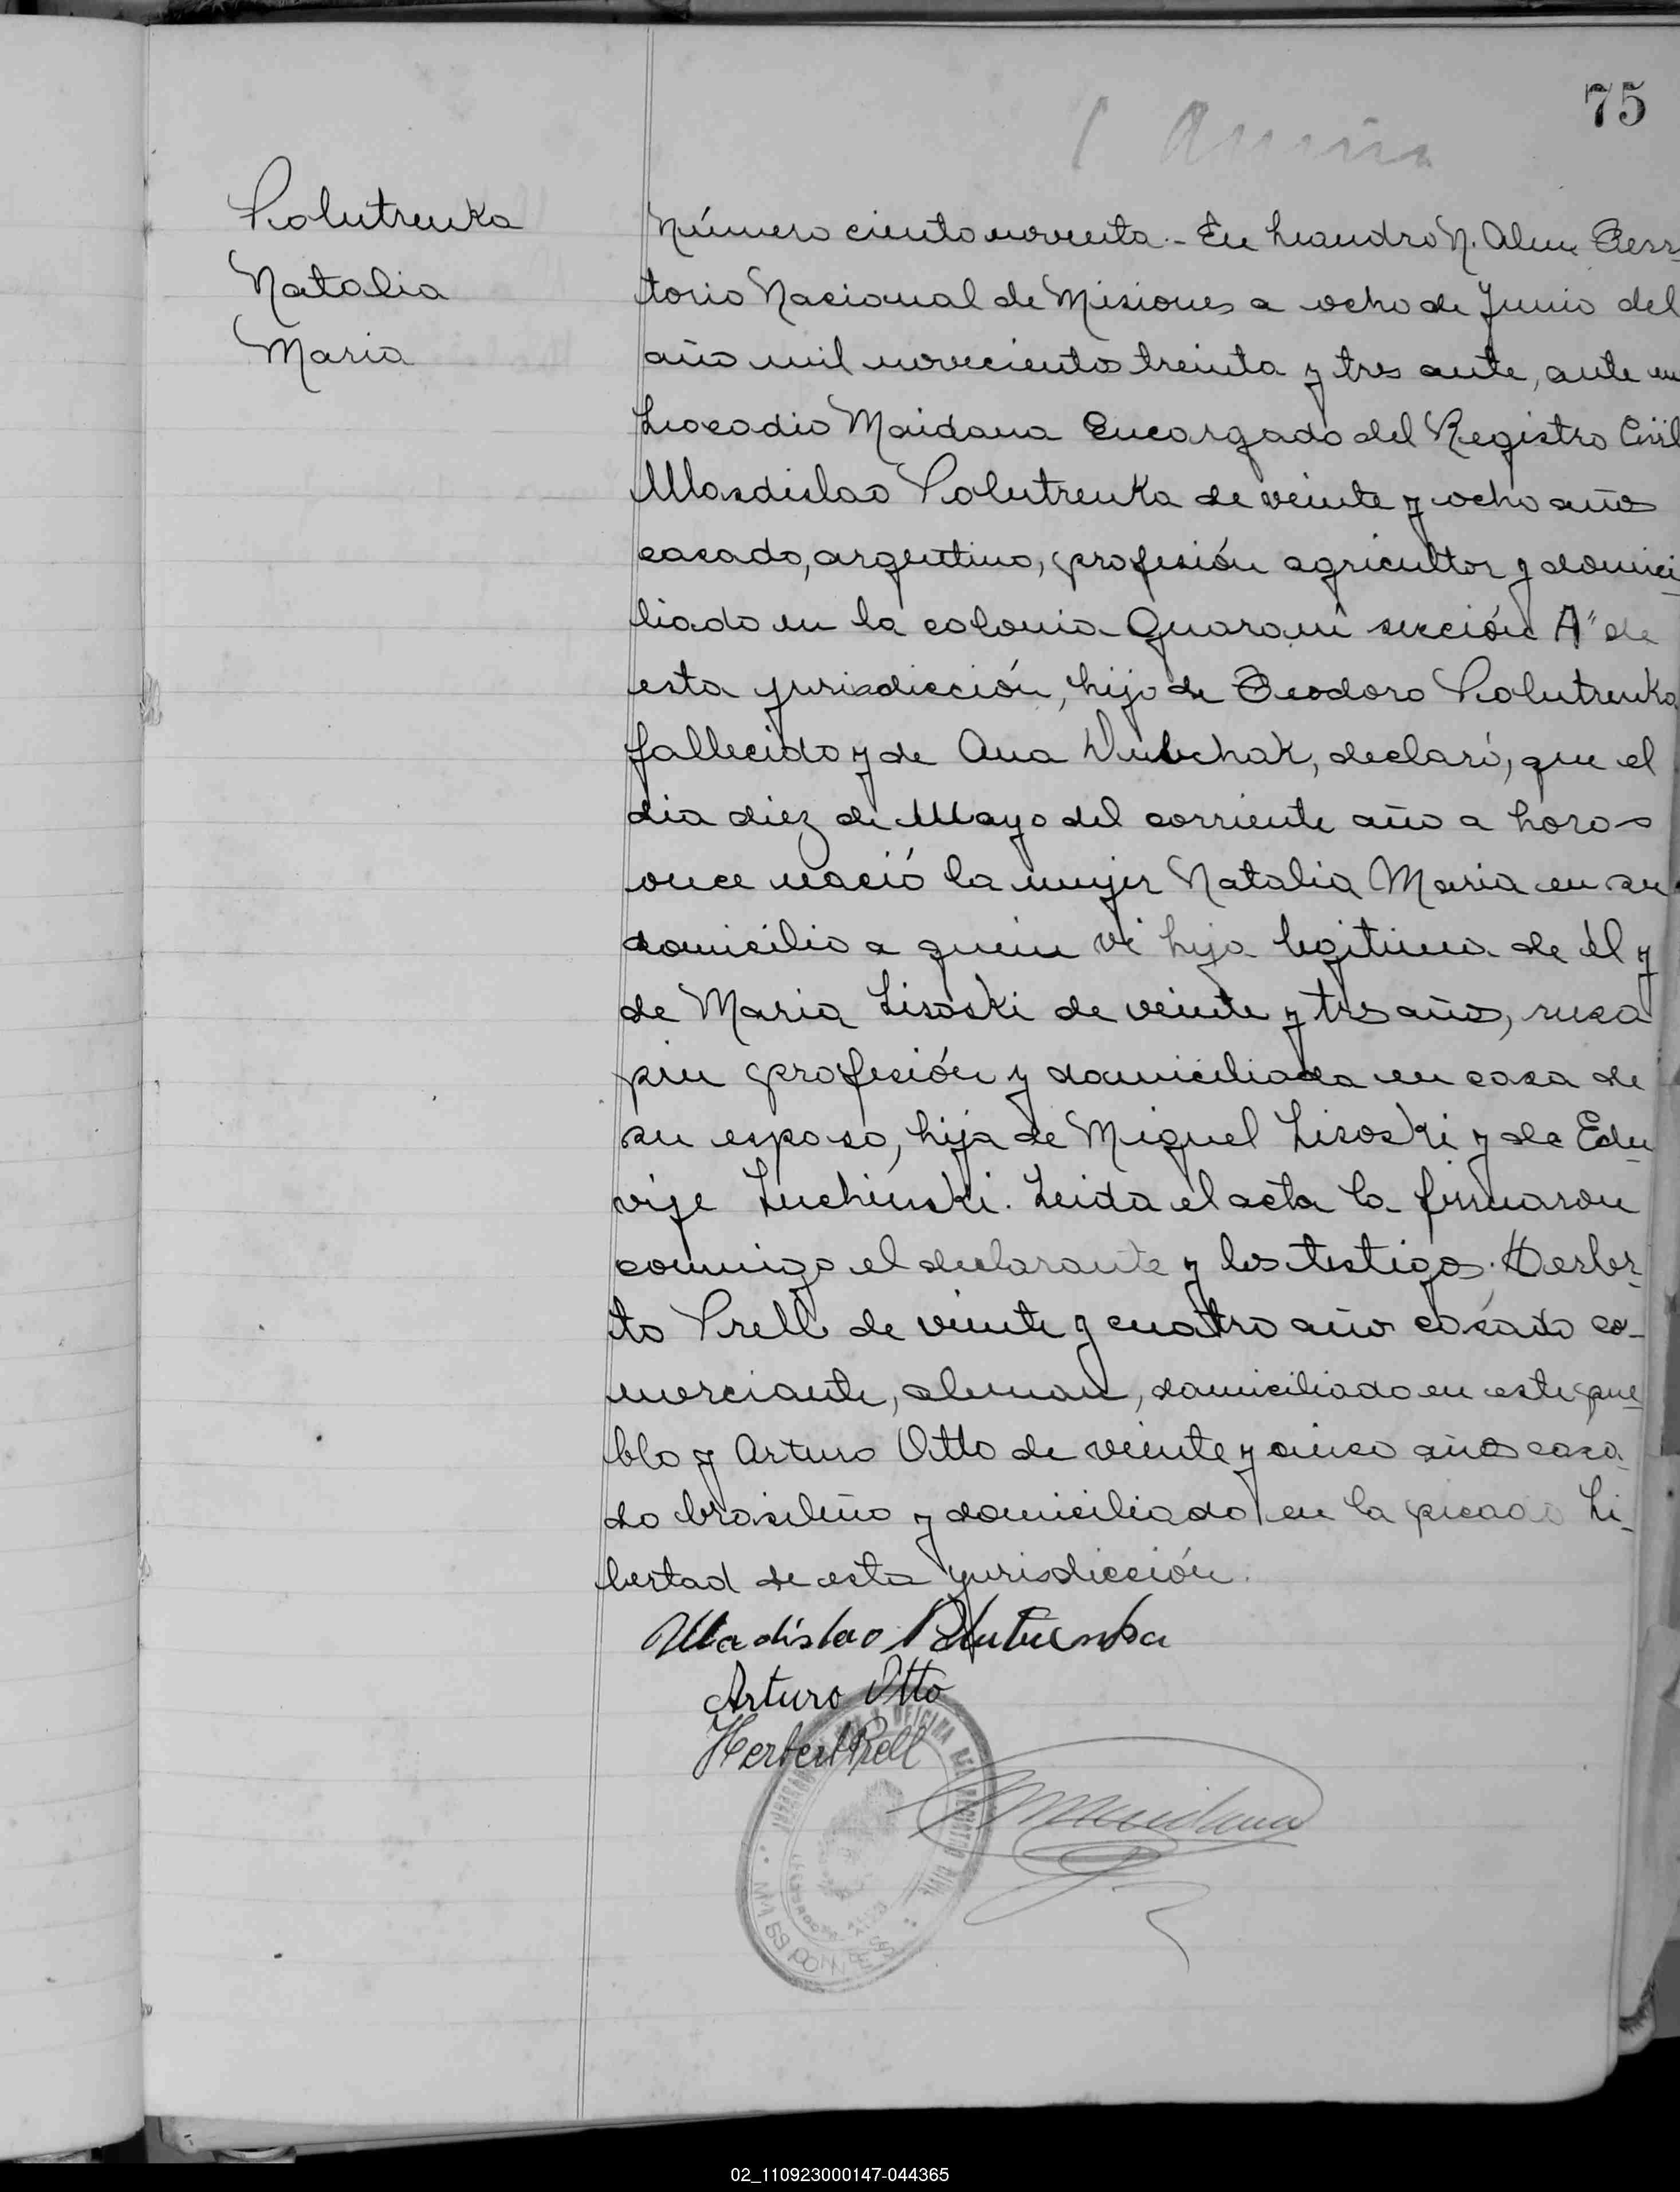 75
Polutrenka
Natalia
Maria
Número ciento noventa.- En Leandro N. Alem Terri-
torio Nacional de Misiones a ocho de Junio del
año mil noveciento treinta y tres ante, ante mi
Leocadio Maidana Encargado del Registro Civil
Wlasdislao Polutrenka de veinte y ocho años
casado, argentino, profesión agricultor y domici-
liado en la colonia Guarani sección A" de
esta jurisdicción, hijo de Teodoro Polutrenka
fallecido y de Ana declaró, que el
dia diez de Mayo del corriente año a horas
once nació la mujer Natalia Maria en su
domicilio a quien vi hija legitima de él y
de Maria Lisoski de veinte y tres años, rusa
sin profesión y domiciliada en casa de
su esposo, hija de Miguel Lisoski y de Edu-
vije Luchinski. Leida el acta la firmaron
conmigo el declarante y los testigos. Herber-
to Prell de veinte y cuatro año casado co-
merciante, aleman, domiciliado en este pue
blo y Arturo Otto de veinte y cinco años casa-
do brasileño y domiciliado en la picada Li-
bertad de esta jurisdicción.
Wladislao Polutrenka
Arturo Otto
Herbert Prell
Maidana
OFICINA DEL REGISTRO CIVIL
02_110923000147-044365